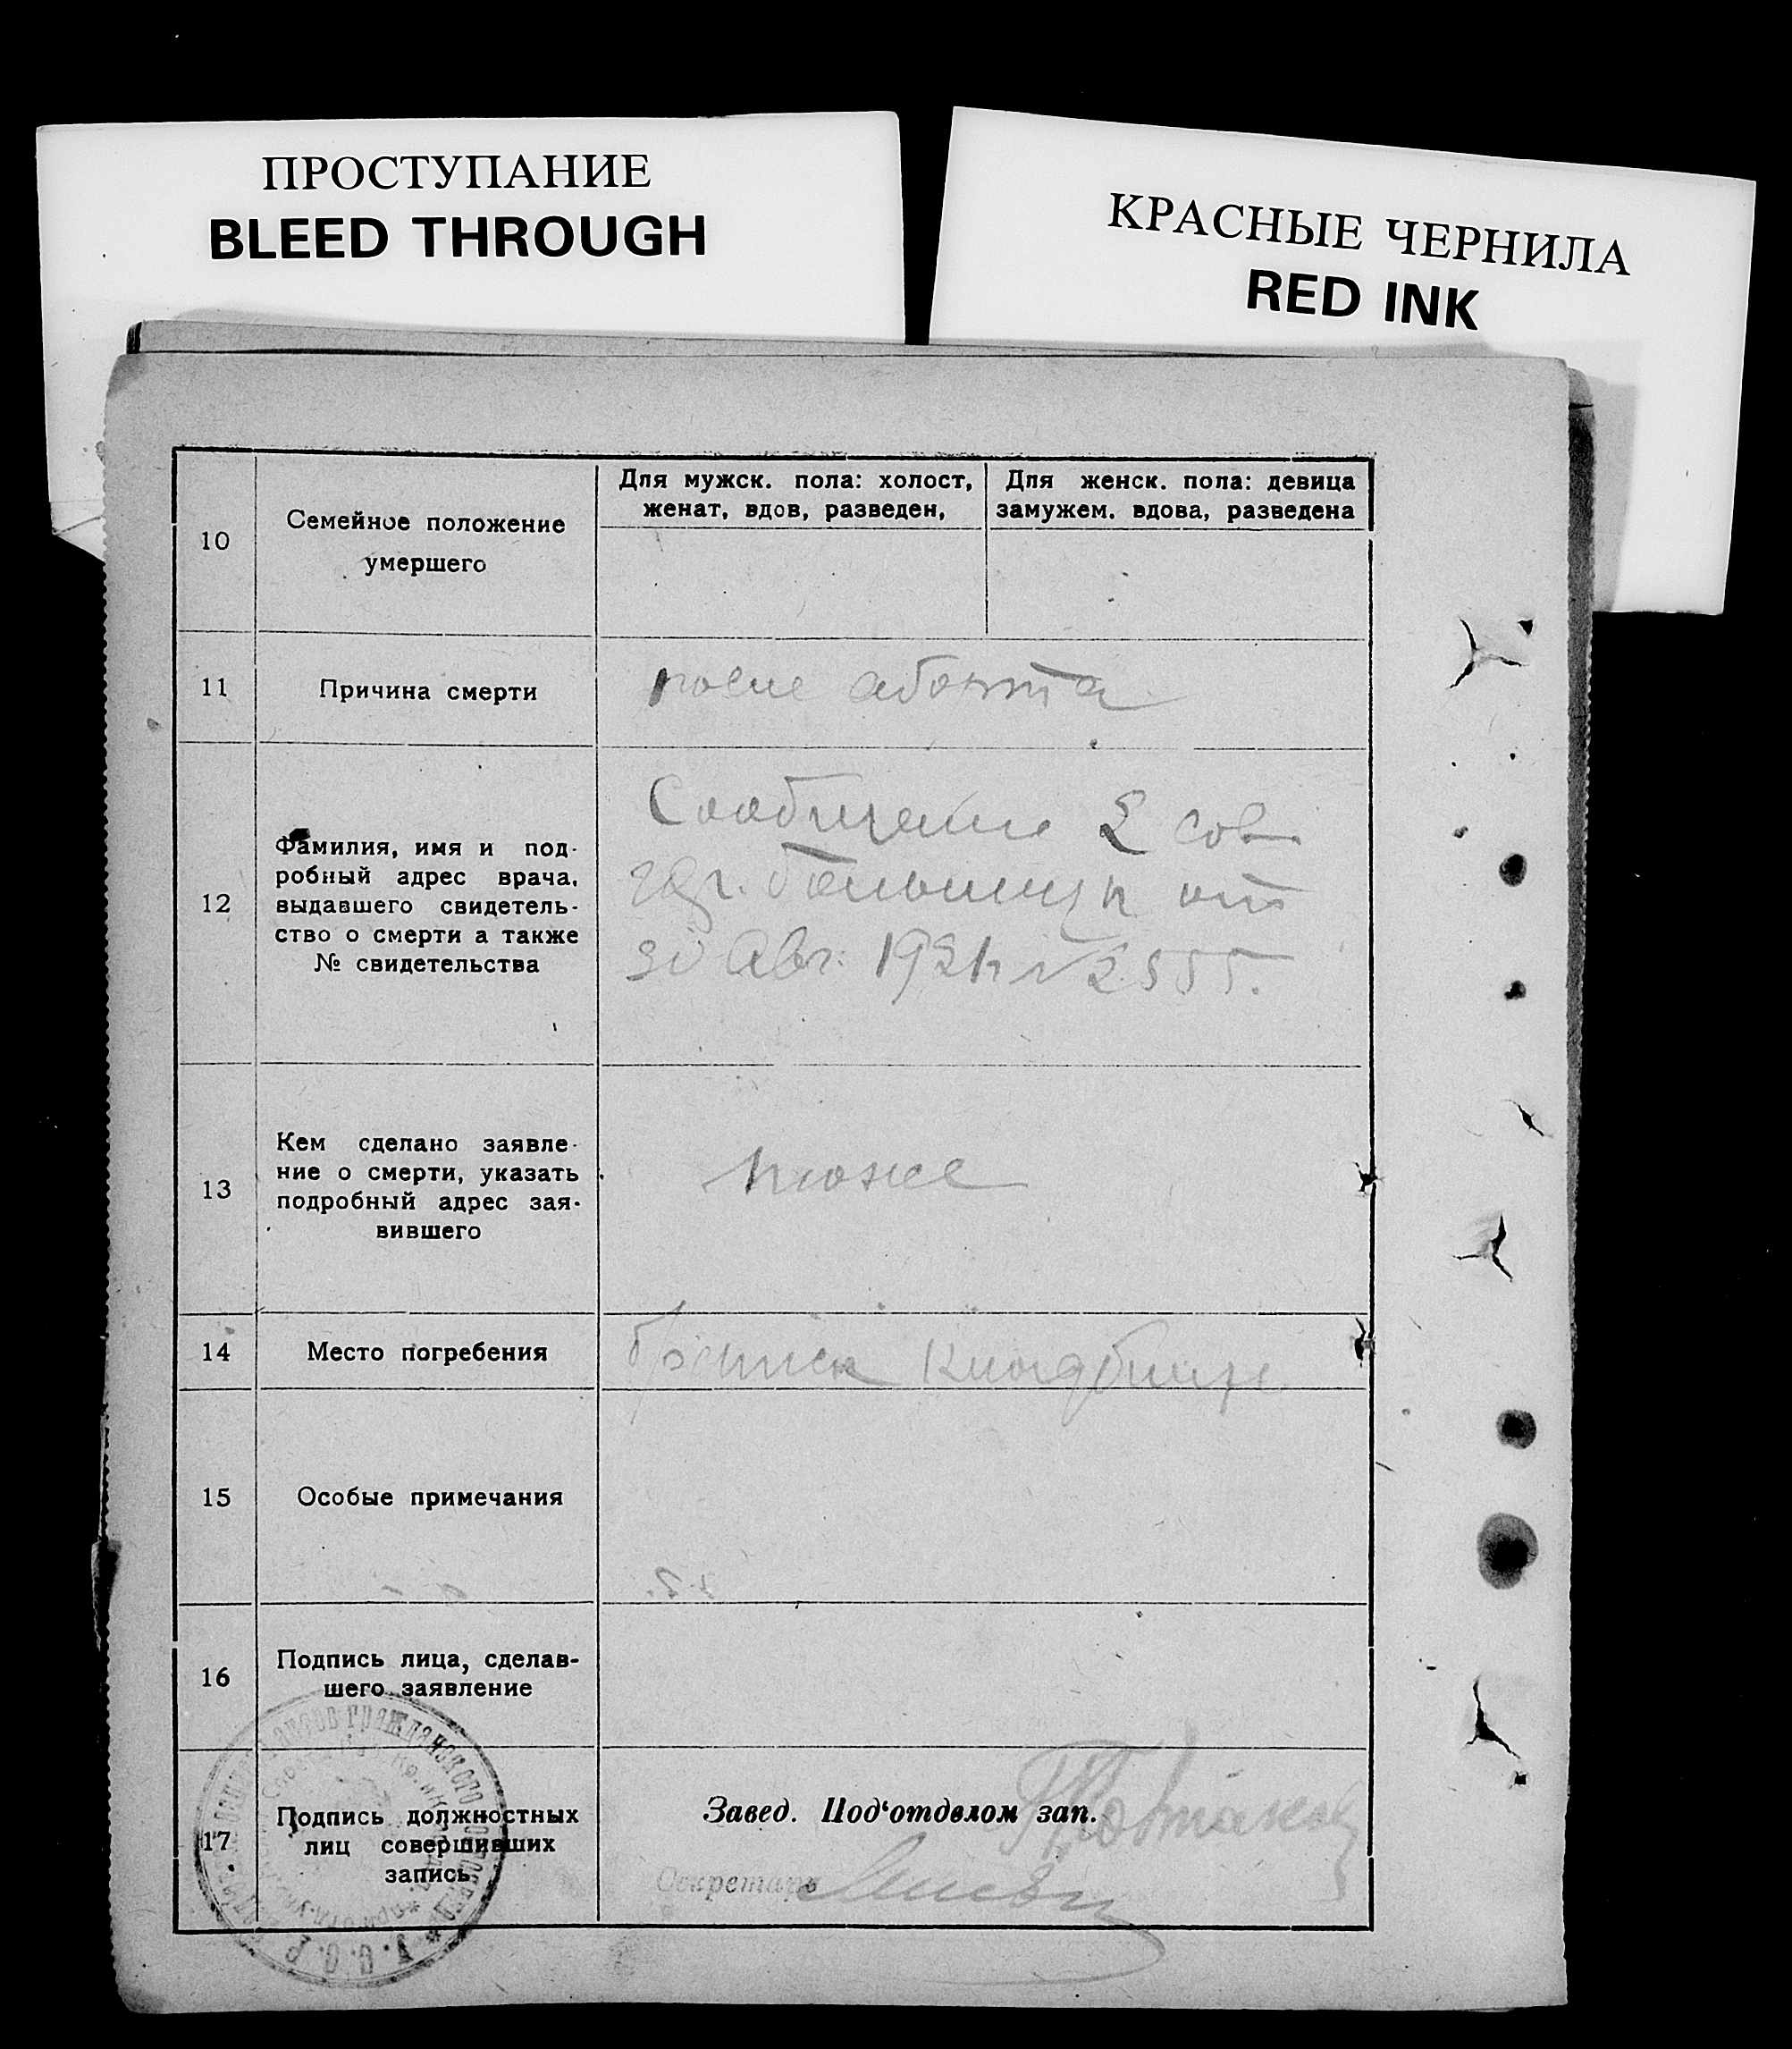 ПРОСТУПАНИЕ
BLEED THROUGH
КРАСНЫЕ ЧЕРНИЛА
RED INK
10
Семейное положение
умершего
Для мужск. пола: холост,
женат, вдов, разведен,
Для женск. пола: девица
замужем. вдова, разведена
11
Причина смерти
после аборта
12
Фамилия, имя и под-
робный адрес врача,
выдавшего свидетель-
ство о смерти а также
№ свидетельства
Сообщение 2 сов
больницы от
30 Авг. 1921 г № 2555.
13
Кем сделано заявле-
ние о смерти, указать
подробный адрес зая-
вившего
тоже
14
Место погребения
братск кладбище
15
Особые примечания
16
Подпись лица, сделав-
шего заявление
17
Подпись должностных
лиц совершивших
запись
Завед. Под‘отделом зап.
Секретарь
гражданского
У.С.С.Р.